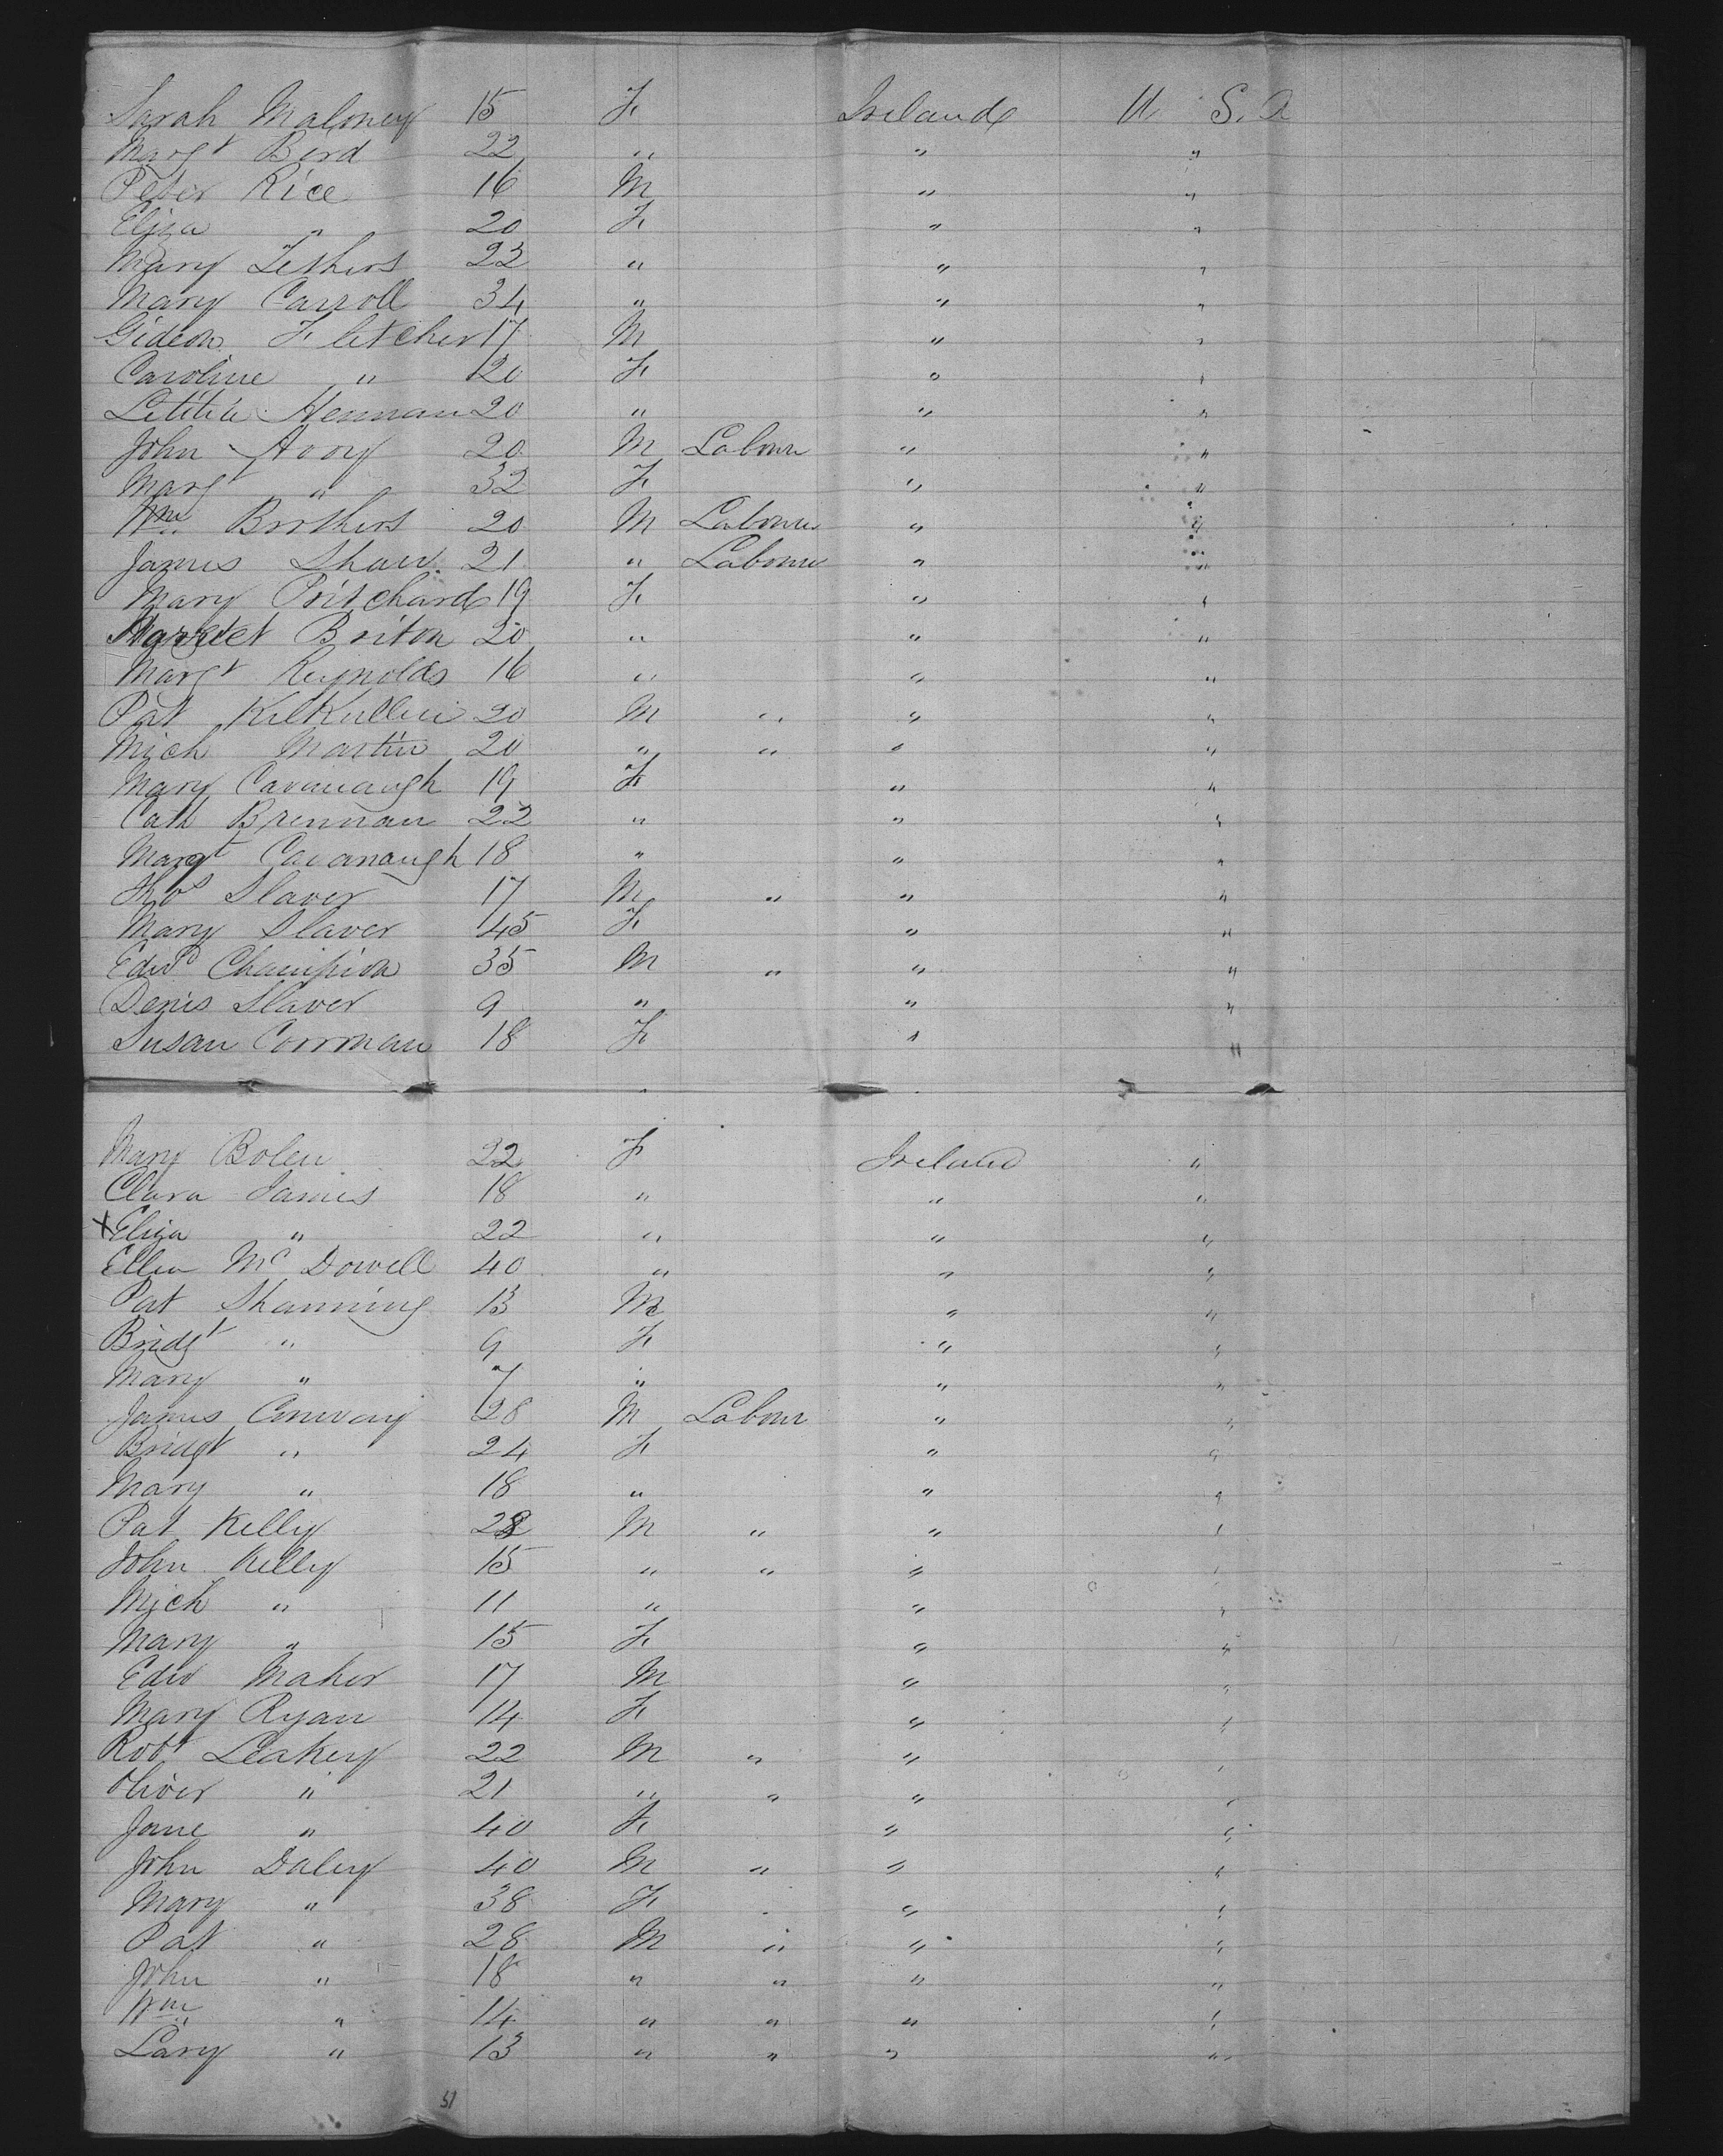 Sarah Maloney 15 F Ireland U. S. A
Margt Berd 22 " " "
Peter Rice 16 M " "
Eliza " 20 F " "
Mary 23 " " "
Mary Carroll 34 " " "
Gideon Fletcher 17 M " "
Caroline " 20 F " "
Letitia 20 " " "
John Avory 20 M Labour " "
Margt " 32 F " "
Wm Brothers 20 M Labour " "
James Shaw 21 " Labour " "
Mary Pritchard 19 F " "
Briton 20 " " "
Margt Reynolds 16 " " "
Pat KilKullin 20 M " " "
Mich Martin 20 " " " "
Mary Cavanaugh 19 F " "
Cath Brennan 22 " " "
Margt Cavanaugh 18 " " "
Thos Slaver 17 M " " "
Mary Slaver 45 F " "
Edwd Champion 35 M " " "
Denis Slaver 9 " " "
Susan Corrman 18 F " "
Mary Bolen 22 F Ireland "
Clara James 18 " " "
x Eliza " 22 " " "
Ellen McDowell 40 " " "
Pat Shanning 13 M " "
Bridgt " 9 F " "
Mary " 7 " " "
James Conway 28 M Labour " "
Bridgt " 24 F " "
Mary " 18 " " "
Pat Kelly 28 M " " "
John Kelly 15 " " " "
Mich " 11 " " "
Mary " 15 F " "
Edw Maher 17 M " "
Mary Ryan 14 F " "
Robt Leakey 22 M " " "
Oliver " 21 " " " "
Jane " 40 F " "
John Daley 40 M " " "
Mary " 38 F " "
Pat " 28 M " " "
John " 18 " " " "
Wm " 14 " " " "
Lary " 13 " " " "
51